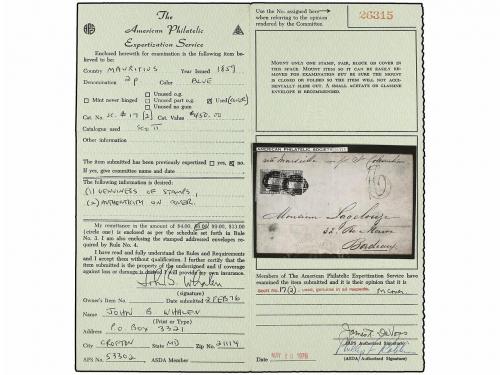 The
American Philatelic
Expertization Service
Enclosed herewith for examination is the following item believed to be:
Country MAURITIUS Year Issued 1859
Denomination 2p Color BLUE
Mint never hinged
Unused o.g.
Unused part o.g.
Unused no gum
Used (COVER)
Cat. No. SC. #17 (2) Cat. Value $450.00
Catalogue used
Other information
The item submitted has been previously expertized yes no
If yes, give committee name and date
The following information is desired:
(1) GENUINENESS OF STAMPS,
(2) AUTHENTICITY ON COVER.
My remittance in the amount of $4.00, $8.00, $33.00
(circle one) is enclosed as per the schedule set forth in Rule
No. 3. I am also enclosing the stamped addressed envelopes required by Rule No. 4.
I have read and fully understand the Rules and Requirements
and I accept them without qualification. I further certify that
the item submitted is the property of the undersigned and if coverage
against loss or damage is desired I will provide my own insurance.
John B. Whalen
(signature)
Owner's Item No. Date submitted 2 FEB 76
Name JOHN B WHALEN
(Print or Type)
Address P.O. BOX 3321
City CROFTON State MD Zip No. 21114
APS No. 53302 ASDA Member
Use the No. assigned here
when referring to the opinion
rendered by the Committee.
26315
Mount only one stamp, pair, block or cover in
this space. Mount item so it can be easily removed for examination but be sure the mount
is closed or folded so the item will not accidentally slide out. A small acetate or glassine
envelope is recommended.
AMERICAN PHILATELIC SOCIETY
via Marseille
Monsieur
Bordeaux
Members of The American Philatelic Expertization Service have
examined the item submitted and it is their opinion that it is
Scott No. 17(2), used, genuine in all respects. on Cover
(APS Authorized Signature)
Date MAY 20 1976
(ASDA Authorized Signature)